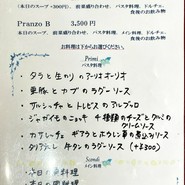 (本日のスープ+300円)、前菜盛り合わせ、パスタ料理、ドルチェ、
食後のお飲み物
Pranzo B 3,500円
本日のスープ、前菜盛り合わせ、パスタ料理、メイン料理、ドルチェ、
食後のお飲み物
お料理は下からお選びください
Primi
パスタ料理
・タラと生のりのアーリオオーリオ
・豆豚とカブのラグーソース
・サルシッチャとトレビスの
・ジャガイモのニョッキ 4種類のチーズと
クリームソース
・カサレッチェ ギアラと
・タリアテッレ 牛タンのラグーソース (+¥300)
Secondi
メイン料理
・本日の魚料理
・本日の